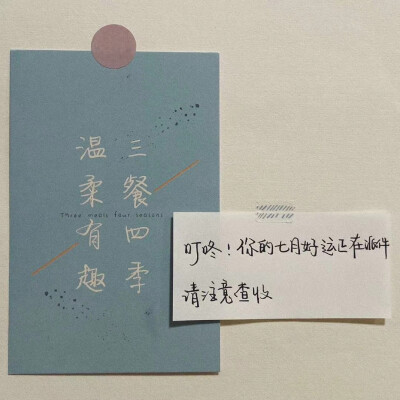 三餐四季
温柔有趣
Three meals four seasons
叮咚！你的七月好运正在派件
请注意查收